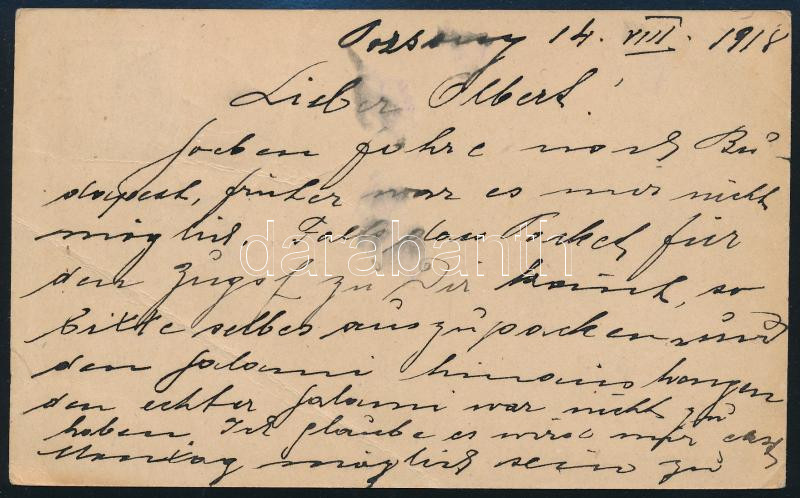 Pozsony 14. VIII. 1918
Lieber Olbert!
Soeben fahre nach Bu-
dapest, früher war es mir nicht
möglich. Falls das Packet für
den Zugsf. zu Dir kommt, so
bitte selbes auszupacken und
den Salami hinaushängen
den echter Salami war nicht zu
haben. Ich glaube es wird mir erst
Montag möglich sein zu
darabanth